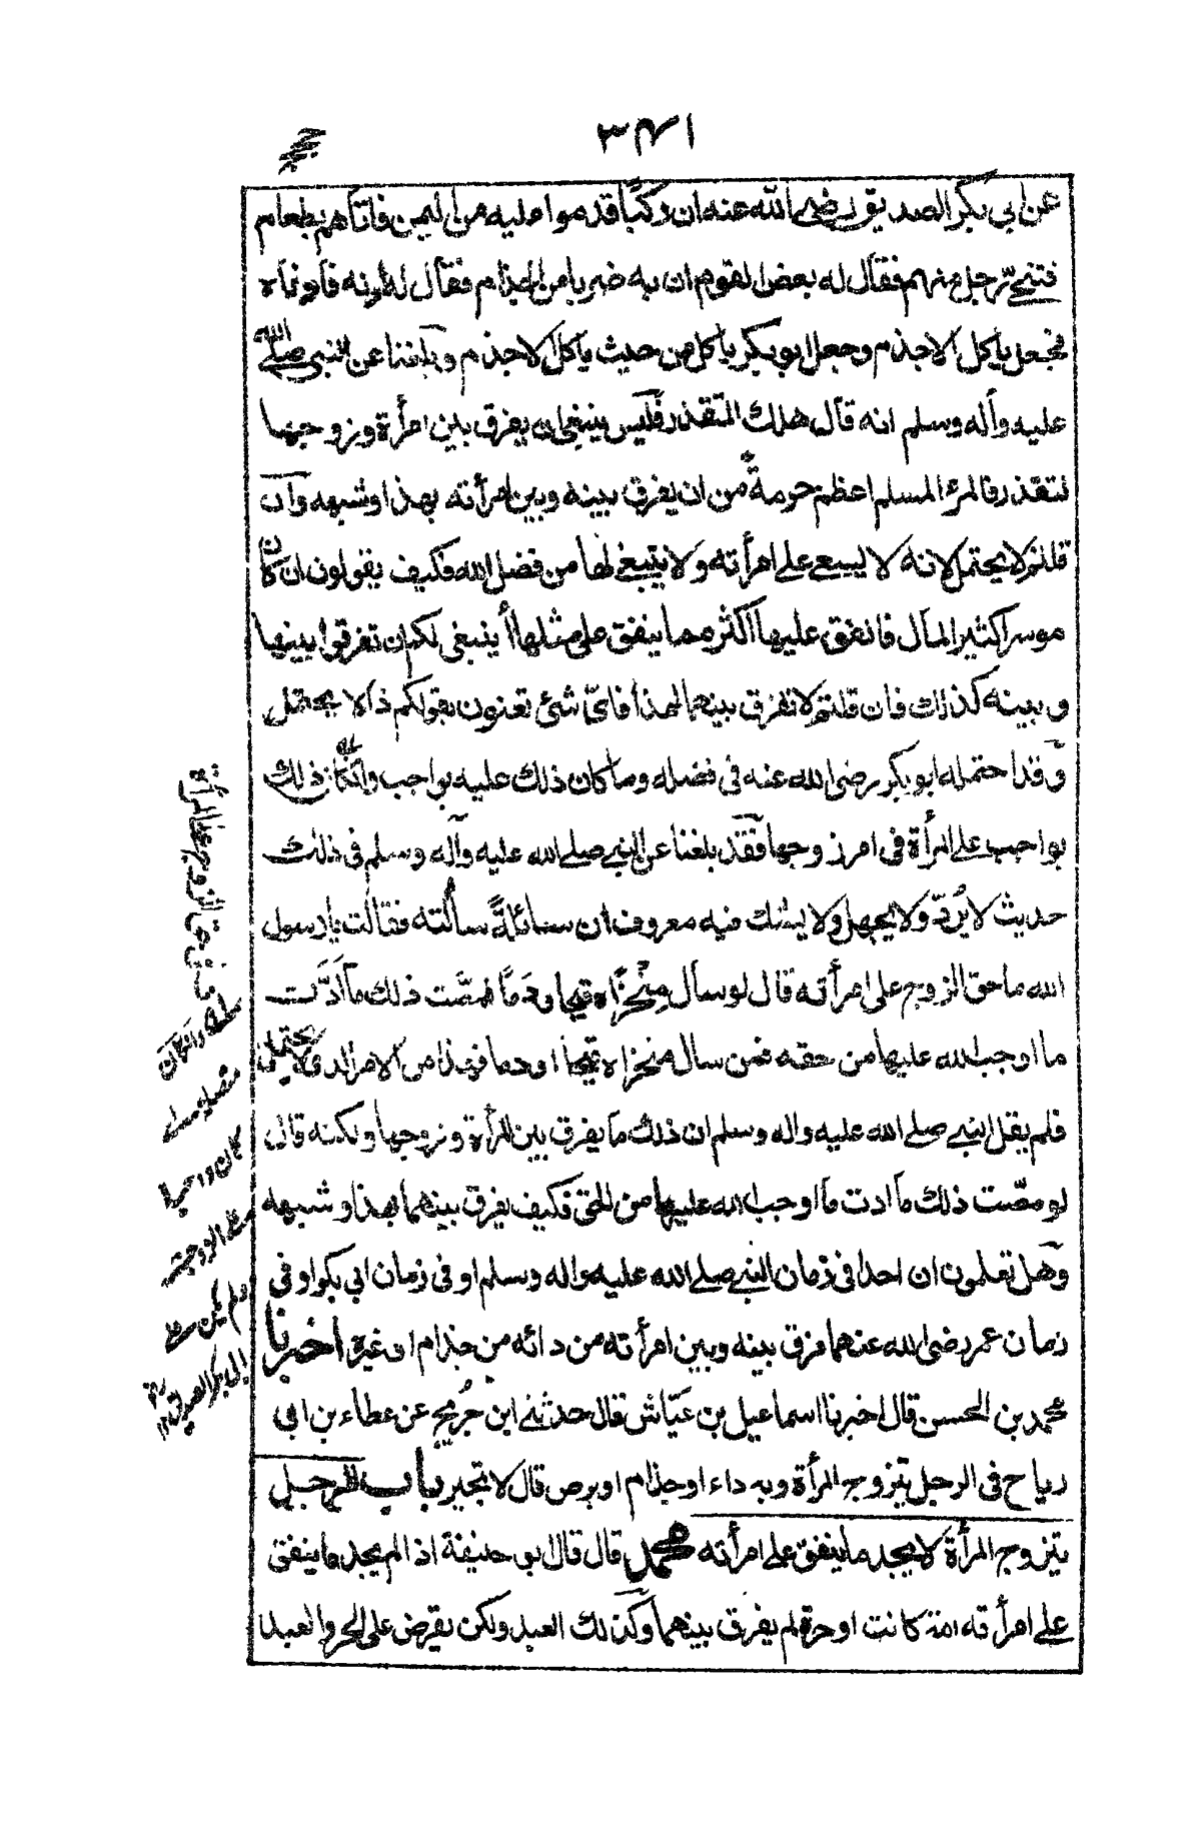 ٣٤١
عن ابي بكر الصديق رضي الله عنه ان ركبا قدموا عليه من اليمن فاتاهم بطعام
فتنحى رجل منهم فقال له بعض القوم ان به ضربا من الجذام فقال له ادنه فادناه
فجعل ياكل الاجذم وجعل ابو بكر ياكل من حيث ياكل الاجذم وبلغنا عن النبي صلى الله
عليه وآله وسلم انه قال هلك المتقذر فليس ينبغي ان يفرق بين امرأة وزوجها
لتقذر فالمرء المسلم اعظم حرمة من ان يفرق بينه وبين امرأته بهذا وشبهه وان
قلتم لا يحتمل لانه لا يسع على امرأته ولا يتبغى لها من فضل الله فكيف يقولون ان كان
موسرا كثير المال فانفق عليها اكثر مما ينفق على مثلها أ ينبغي لكم ان تفرقوا بينها
وبينه كذلك فان قلتم لا تفرق بينهما لهذا فاي شئ تعنون بقولكم ذا لا يحتمل
وقد احتمله ابو بكر رضى الله عنه في فضله وما كان ذلك عليه بواجب وانما كان ذلك
بواجب على المرأة في امر زوجها فقد بلغنا عن النبي صلى الله عليه وآله وسلم في ذلك
حديث لا يُردّ ولا يجهل ولا يشك فيه معروف ان سائلة سألته فقالت يا رسول
الله ما حق الزوج على امرأته قال لو سأل منخراه قيحا ودما فمصّت ذلك ما ادّت
ما اوجب الله عليها من حقه فمن سال منخراه قيحا او دما فهذا من الامر الذي لا يحتمل
فلم يقل النبي صلى الله عليه واله وسلم ان ذلك ما يفرق بين المرأة وزوجها ولكنه قال
لو مصّت ذلك ما ادت ما اوجب الله عليها من الحق فكيف يفرق بينهما بهذا وشبهه
وهل تعلمون ان احدا في زمان النبي صلى الله عليه واله وسلم او في زمان ابي بكر او في
زمان عمر رضى الله عنهما فرق بينه وبين امرأته من دائه من جذام او غيره اخبرنا
محمد بن الحسن قال اخبرنا اسماعيل بن عيّاش قال حدثني ابن جُريج عن عطاء بن ابي
رباح في الرجل يتزوج المرأة وبه داء او جذام او برص قال لا تخير باب الرجل
يتزوج المرأة لا يجد ما ينفق على امرأته محمد قال قال ابو حنيفة اذا لم يجد ما ينفق
على امرأته امة كانت او حرة لم يفرق بينهما وكذلك العبد ولكن يفرض على الحر والعبد